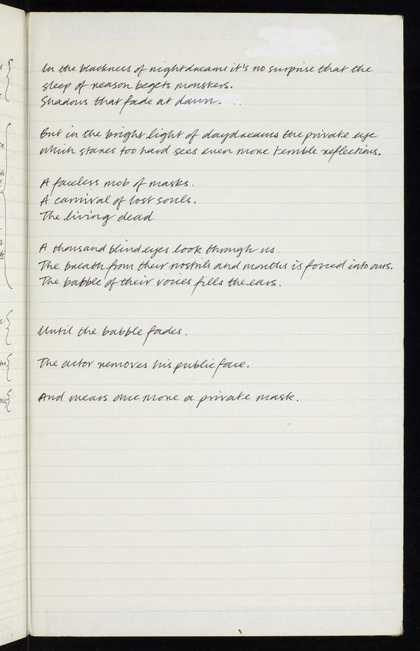 In the blackness of nightdreams it's no surprise that the
sleep of reason begets monsters.
Shadows that fade at dawn. . .
But in the bright light of daydreams the private eye
which stares too hard sees even more terrible reflections.
A faceless mob of masks.
A carnival of lost souls.
The living dead
A thousand blind eyes look through us
The breath from their nostrils and mouths is forced into ours.
The babble of their voices fills the ears.
Until the babble fades.
The actor removes his public face.
And wears once more a private mask.